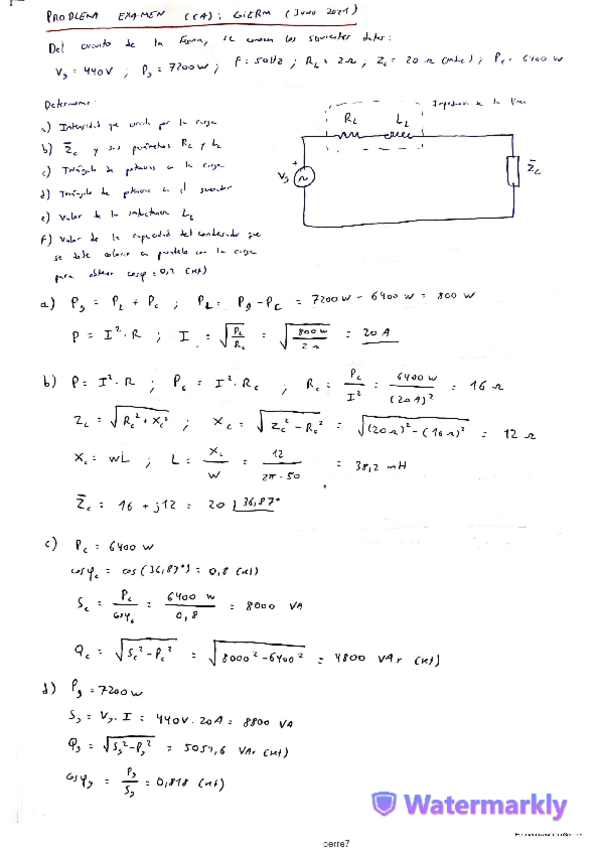 PROBLEMA EXAMEN (CA): GIERM (JUNIO 2021)
Del circuito de la figura, se conocen los siguientes datos:
Vg = 440V ; Pg = 7200 W ; f = 50Hz ; RL = 2 Ω ; Zc = 20 Ω (indc) ; Pc = 6400 W
Determinar:
a) Intensidad que circula por la carga
b) Z̄c y sus parámetros Rc y Lc
c) Triángulo de potencias en la carga
d) Triángulo de potencias en el generador
e) Valor de la inductancia LL
f) Valor de la capacidad del condensador que
se debe colocar en paralelo con la carga
para obtener cosφ = 0,9 (ind)
Impedancia de la línea
RL LL
Vg
+
~
Z̄c
a) Pg = PL + Pc ; PL = Pg - Pc = 7200 W - 6400 W = 800 W
P = I²·R ; I = √(PL/RL) = √(800 W/2 Ω) = 20 A
b) P = I²·R ; Pc = I²·Rc ; Rc = Pc/I² = 6400 W/(20 A)² = 16 Ω
Zc = √(Rc² + Xc²) ; Xc = √(Zc² - Rc²) = √((20 Ω)² - (16 Ω)²) = 12 Ω
Xc = WL ; L = Xc/W = 12/(2π·50) = 38,2 mH
Z̄c = 16 + j12 = 20 |36,87°
c) Pc = 6400 W
cosφc = cos(36,87°) = 0,8 (ind)
Sc = Pc/cosφc = 6400 W/0,8 = 8000 VA
Qc = √(Sc² - Pc²) = √(8000² - 6400²) = 4800 VAr (ind)
d) Pg = 7200 W
Sg = Vg·I = 440V·20A = 8800 VA
Qg = √(Sg² - Pg²) = 5059,6 VAr (ind)
cosφg = Pg/Sg = 0,818 (ind)
Watermarkly
perre7